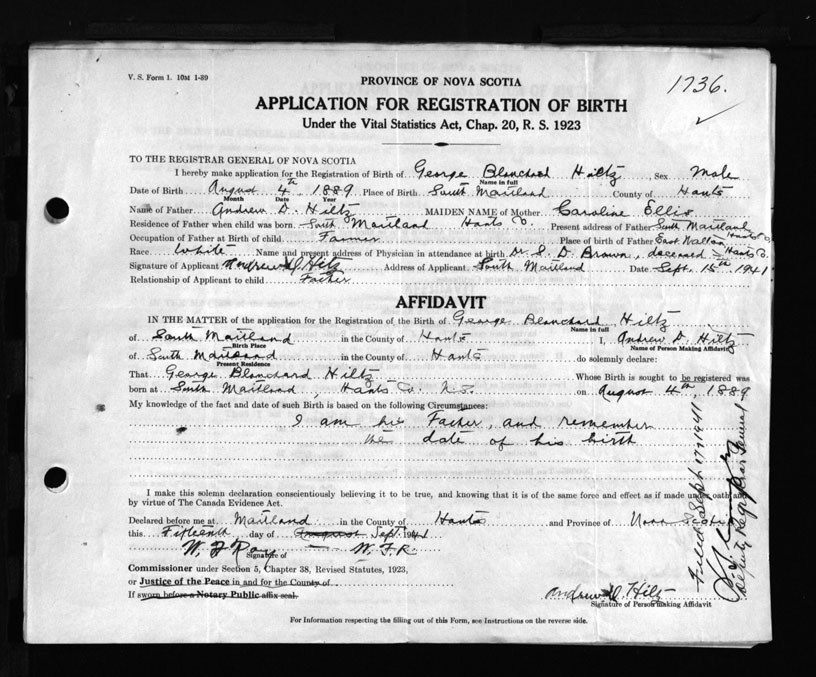 V. S. Form 1. 10M 1-39
PROVINCE OF NOVA SCOTIA
1736.
APPLICATION FOR REGISTRATION OF BIRTH
Under the Vital Statistics Act, Chap. 20, R. S. 1923
TO THE REGISTRAR GENERAL OF NOVA SCOTIA
I hereby make application for the Registration of Birth of George Blanchard Hiltz Sex Male
Name in full
Date of Birth August 4th 1889 Place of Birth South Maitland County of Hants
Month Date Year
Name of Father Andrew D. Hiltz MAIDEN NAME of Mother Caroline Ellis
Residence of Father when child was born South Maitland Hants Co. Present address of Father South Maitland Hants Co
Occupation of Father at Birth of child Farmer Place of birth of Father East Walton Hants Co.
Race White Name and present address of Physician in attendance at birth Dr. S. D. Brown, deceased
Signature of Applicant Andrew D Hiltz Address of Applicant South Maitland Date Sept. 15th 1941
Relationship of Applicant to child Father
AFFIDAVIT
IN THE MATTER of the application for the Registration of the Birth of George Blanchard Hiltz
Name in full
of South Maitland in the County of Hants I, Andrew D. Hiltz
Birth Place Name of Person Making Affidavit
of South Maitland in the County of Hants do solemnly declare:
Present Residence
That George Blanchard Hiltz Whose Birth is sought to be registered was
born at South Maitland, Hants Co. N.S. on August 4th, 1889
My knowledge of the fact and date of such Birth is based on the following Circumstances:
I am his Father, and remember
the date of his birth
I make this solemn declaration conscientiously believing it to be true, and knowing that it is of the same force and effect as if made under oath and
by virtue of The Canada Evidence Act.
Declared before me at Maitland in the County of Hants and Province of Nova Scotia
this Fifteenth day of August Sept. 1941
W. F. R.
Signature of
Commissioner under Section 5, Chapter 38, Revised Statutes, 1923,
or Justice of the Peace in and for the County of
If sworn before a Notary Public affix seal.
Andrew D Hiltz
Signature of Person making Affidavit
For Information respecting the filling out of this Form, see Instructions on the reverse side.
Filed Sept 17 1941
Deputy Registrar General